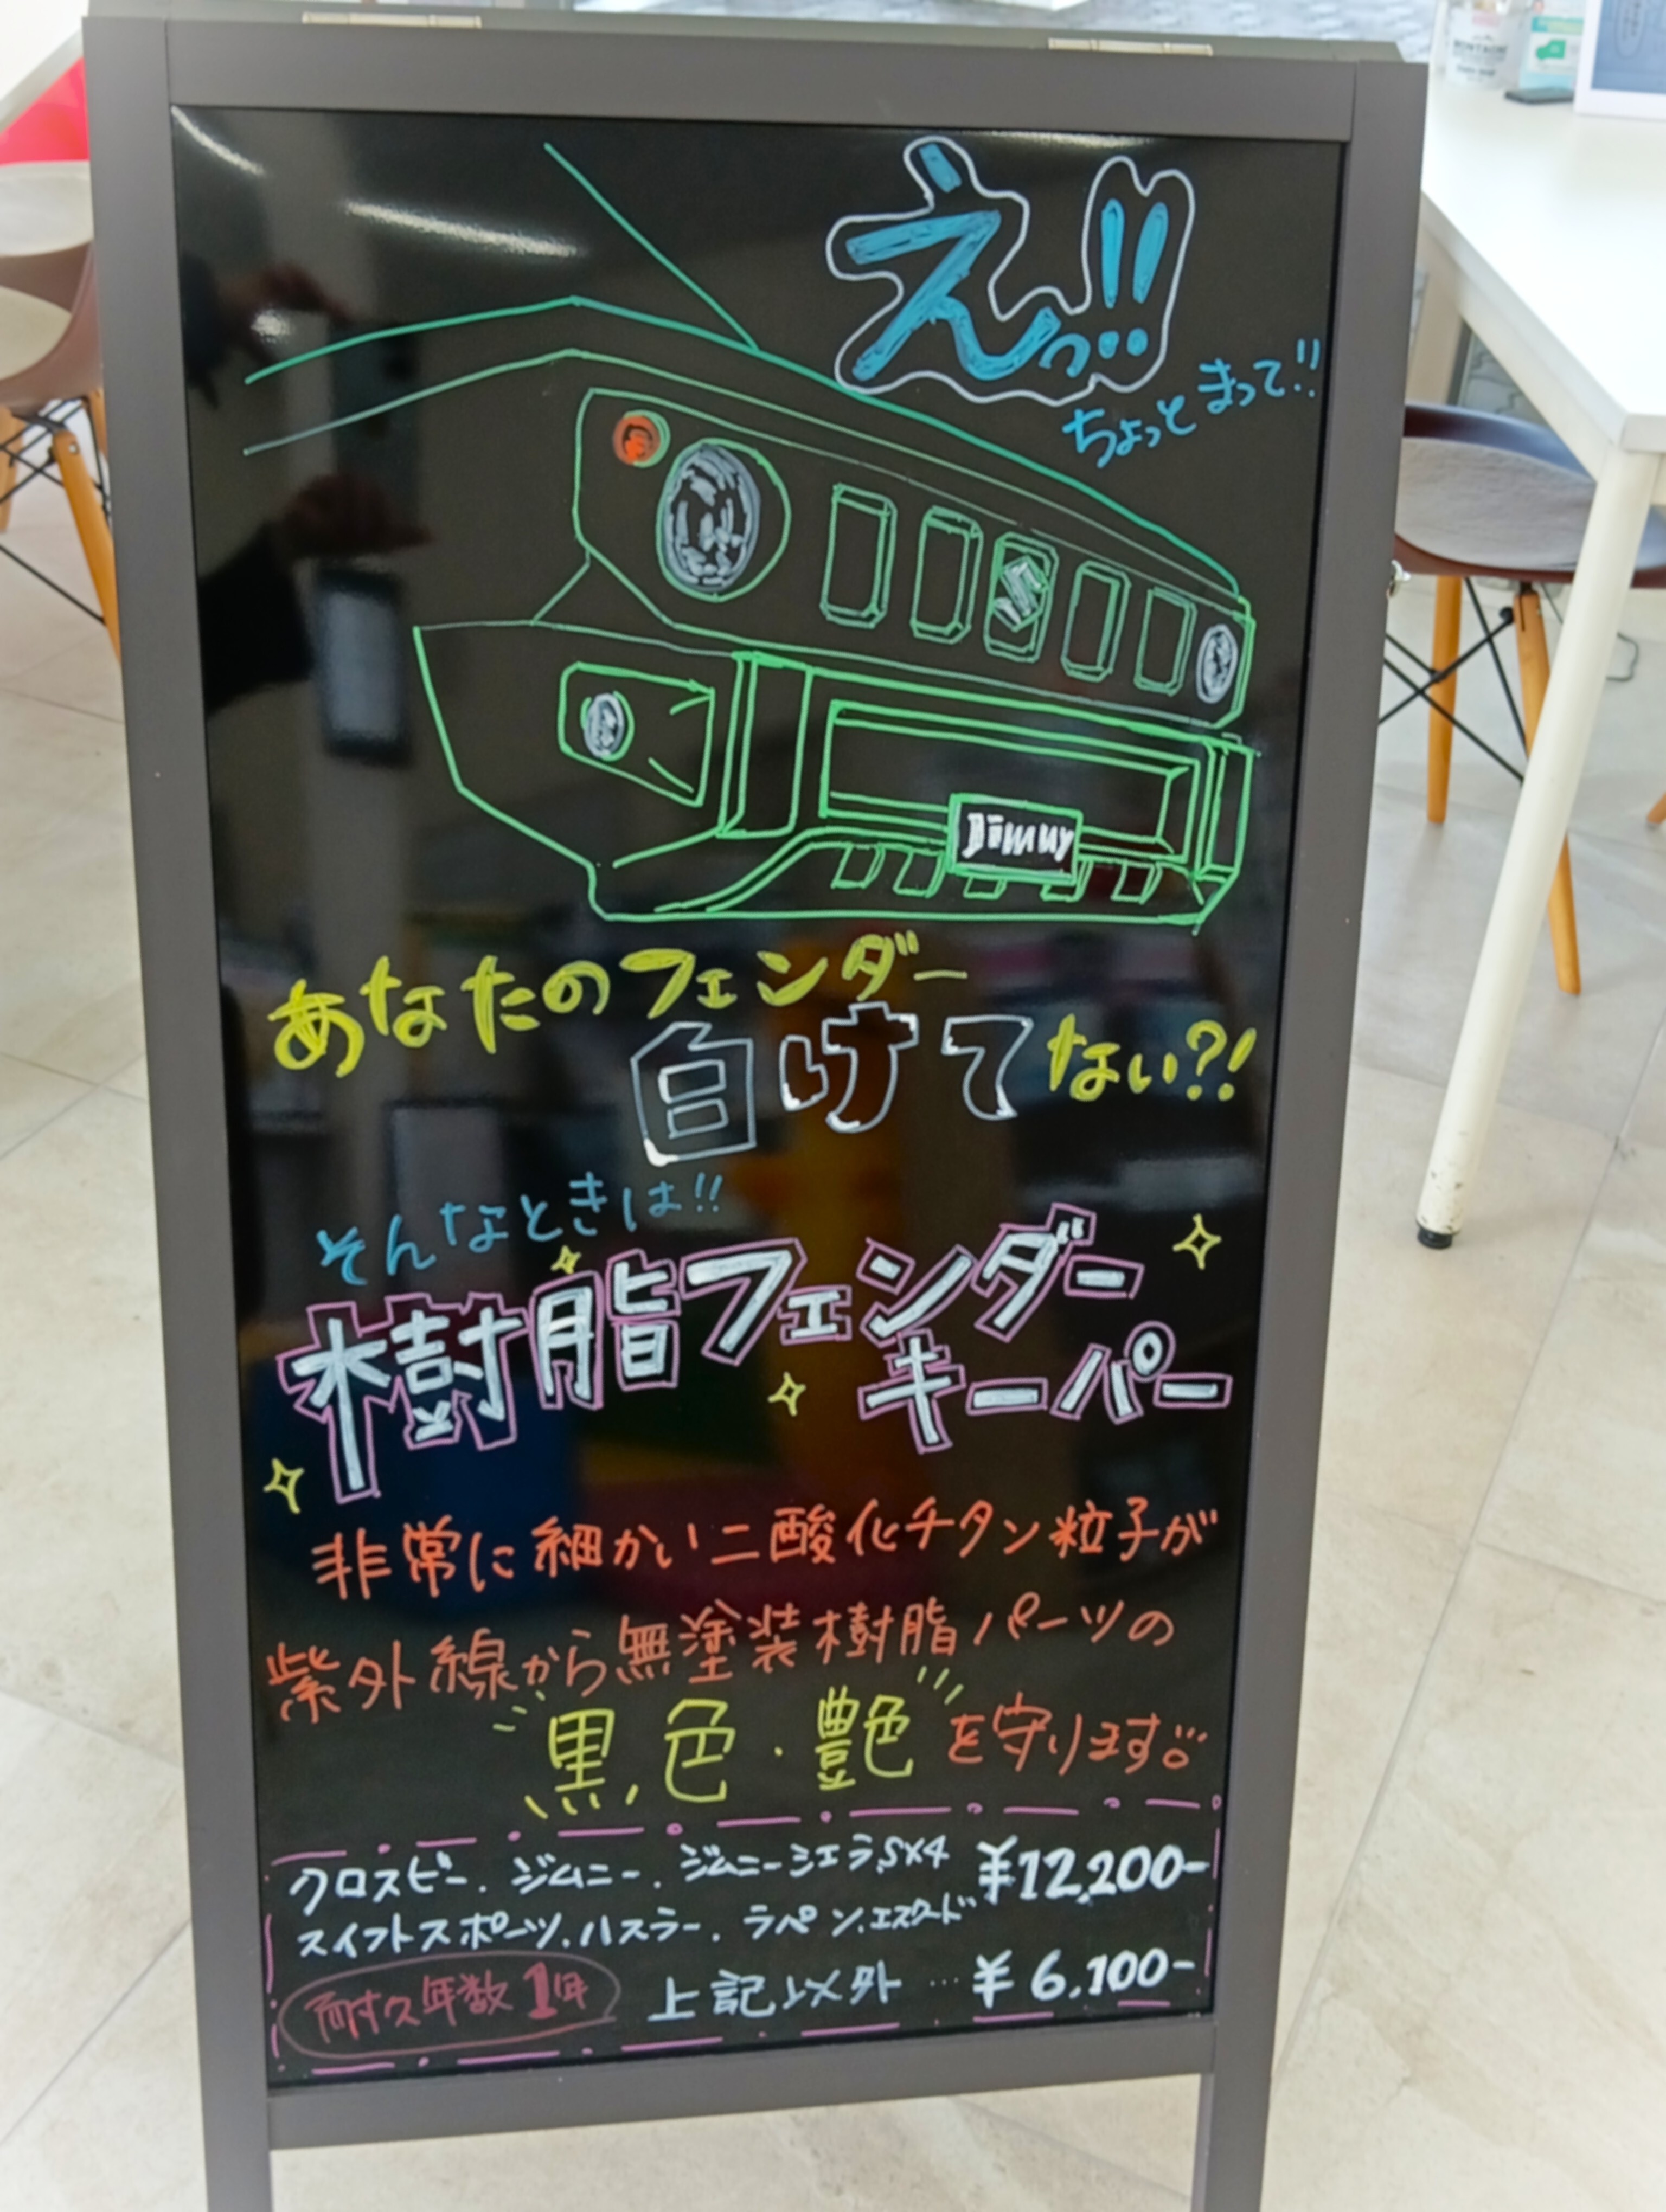 えっ!!
ちょっとまって!!
Jimny
あなたのフェンダー
白けてない?!
そんなときは!!
樹脂フェンダー
キーパー
非常に細かい二酸化チタン粒子が
紫外線から無塗装樹脂パーツの
黒色・艶を守ります。
クロスビー、ジムニー、ジムニーシエラ、SX4 ¥12,200-
スイフトスポーツ、ハスラー、ラパン、エスクード
耐久年数1年 上記以外 … ¥6,100-